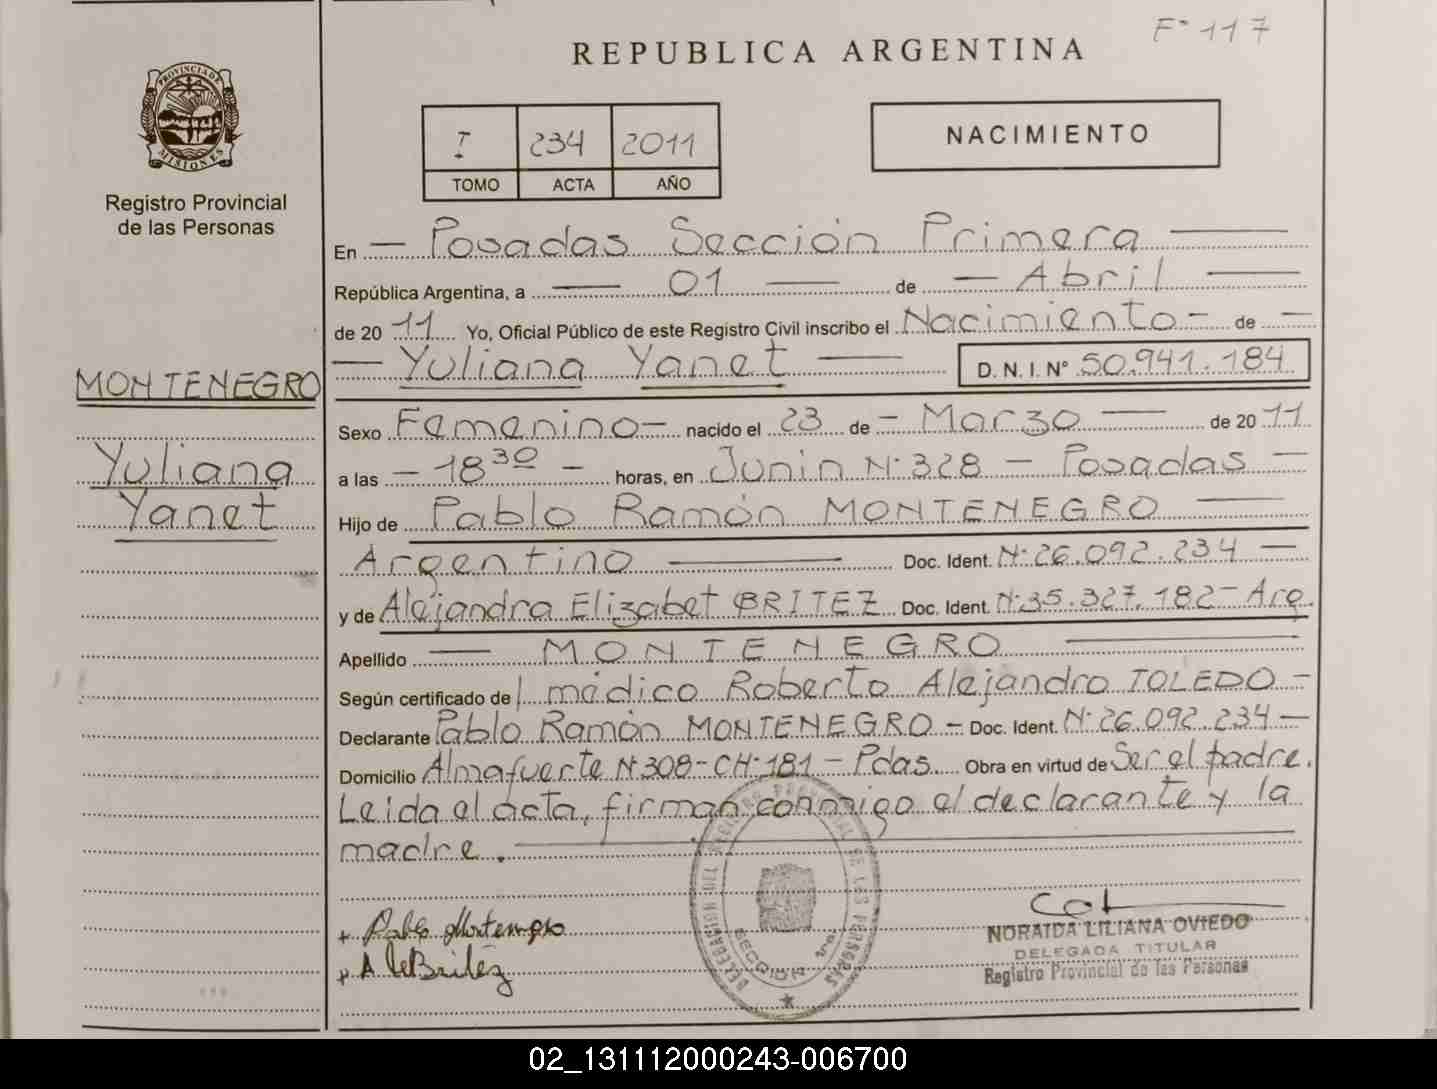 F° 117
REPUBLICA ARGENTINA
PROVINCIA DE
MISIONES
Registro Provincial
de las Personas
I 234 2011
TOMO ACTA AÑO
NACIMIENTO
En — Posadas Sección Primera —
República Argentina, a — 01 — de — Abril —
de 2011 Yo, Oficial Público de este Registro Civil inscribo el Nacimiento — de —
— Yuliana Yanet — D. N. I. Nº 50.941.184
MONTENEGRO
Yuliana
Yanet
Sexo Femenino — nacido el 23 de — Marzo — de 2011
a las — 18 30 — horas, en Junin N° 328 — Posadas —
Hijo de Pablo Ramón MONTENEGRO —
Argentino — Doc. Ident. N° 26.092.234 —
y de Alejandra Elizabet BRITEZ Doc. Ident. N° 35.327.182 — Arg.
Apellido — MONTENEGRO —
Según certificado del médico Roberto Alejandro TOLEDO —
Declarante Pablo Ramón MONTENEGRO — Doc. Ident. N° 26.092.234 —
Domicilio Almafuerte N° 308 - CH° 181 — Pdas. Obra en virtud de Ser el padre.
Leida el acta, firman conmigo el declarante y la
madre. —
DELEGACION DEL REGISTRO PROVINCIAL DE LAS PERSONAS
SECCION 1ra.
+ Pablo Montenegro
+ A Britez
NORAIDA LILIANA OVIEDO
DELEGADA TITULAR
Registro Provincial de las Personas
02_131112000243-006700